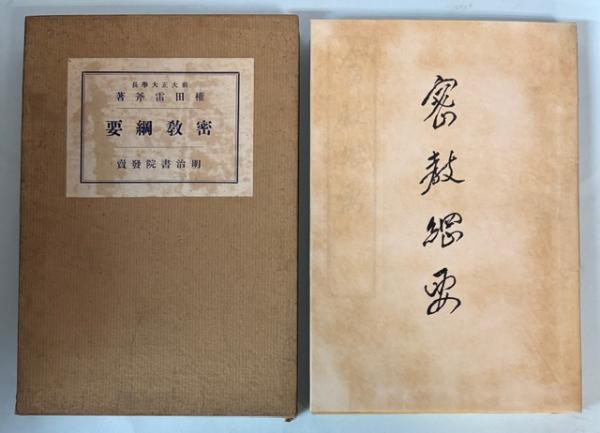 前大正大學長
權田雷斧著
密敎綱要
明治書院發賣
密教綱要